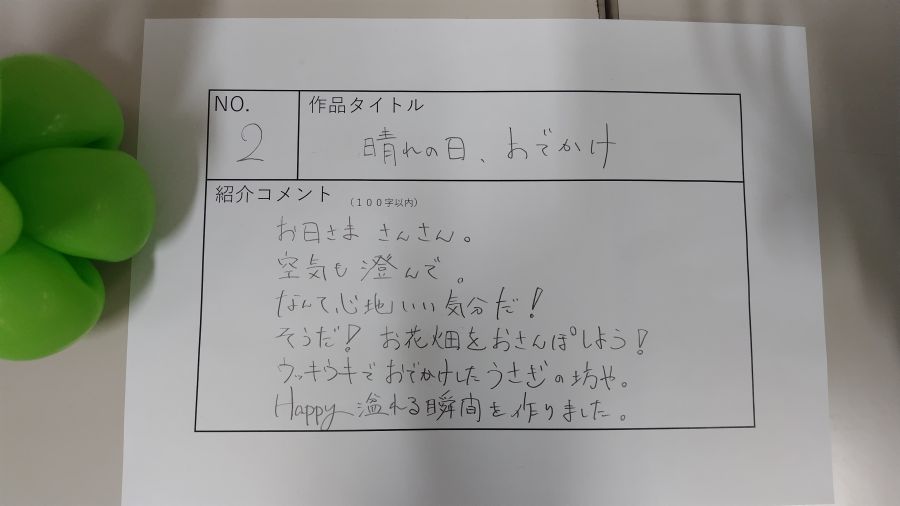 NO.
2
作品タイトル
晴れの日、おでかけ
紹介コメント
(100字以内)
お日さま さんさん。
空気も澄んで。
なんて心地いい気分だ!
そうだ! お花畑をおさんぽしよう!
ウッキウキでおでかけしたうさぎの坊や。
Happy溢れる瞬間を作りました。